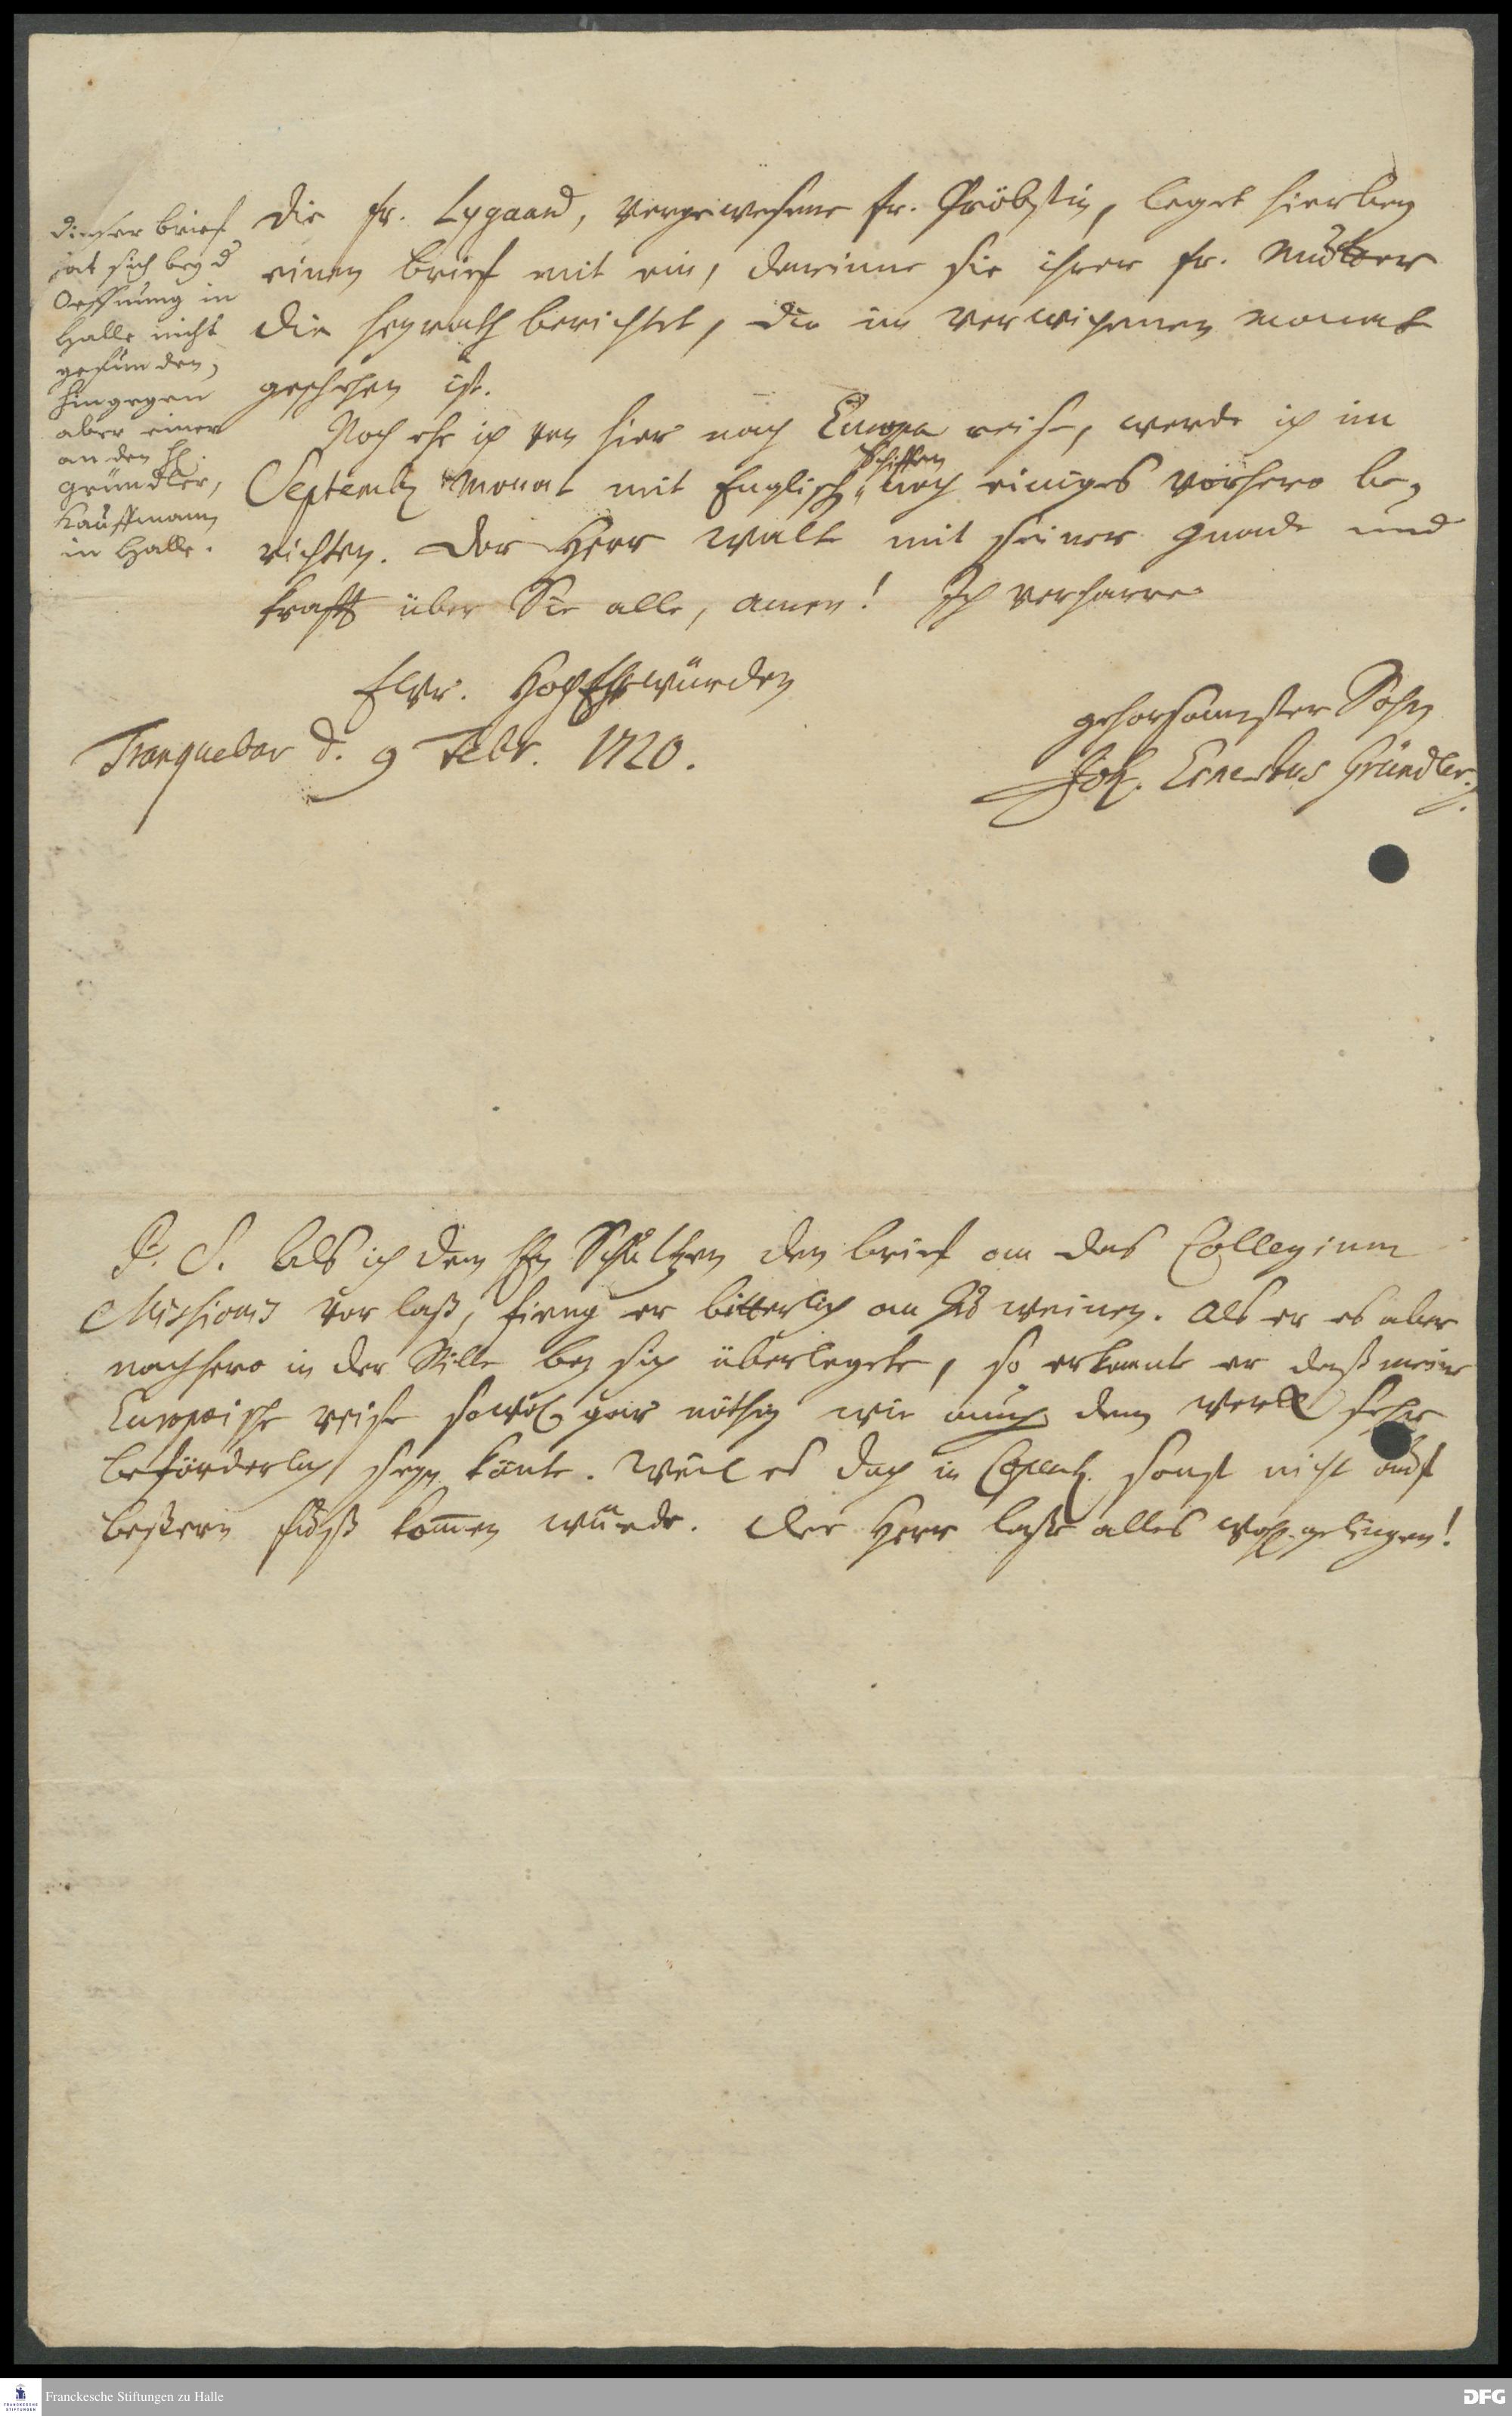 Dieser brief
hat sich bey d
Oeffnung in
Halle nicht
gefunden,
hingegen
aber einer
an den H.
Gründler,
Kauffmann
in Halle.
Die fr. Lygaard, vergewesene fr. Pröbstin, leget hierbey
einen brief mit ein, darinne sie ihrer fr. Mutter
die heyrath berichtet, die im verwichenen monat
geschehen ist.
Noch ehe ich von hier nach Europa reise, werde ich im
Septembr monat mit Englisch. Schiffen noch einiges vorhero be-
richten. Der Herr walte mit seiner gnade und
krafft über Sie alle, amen! Ich verharre
Ewr. HochEhrwürden
gehorsamster Sohn
Tranquebar d. 9 Febr. 1720.
Joh. Ernestus Gründler.
P. S. Als ich dem Hn Schultzen den brief an das Collegium
Missionis vor laß, fieng er bitterlich an zu weinen. Als er es aber
nachhero in der Stille bey sich überlegete, so erkante er daß meine
Europaeische reise sowol gar nöthig wie auch dem werck sehr
beförderlich seyn könte. Weil es doch in Copenh. sonst nicht auf
beßern fuß kom̅en würde. Der Herr laße alles wohl gelingen!
Franckesche Stiftungen zu Halle
FRANCKESCHE STIFTUNGEN
DFG